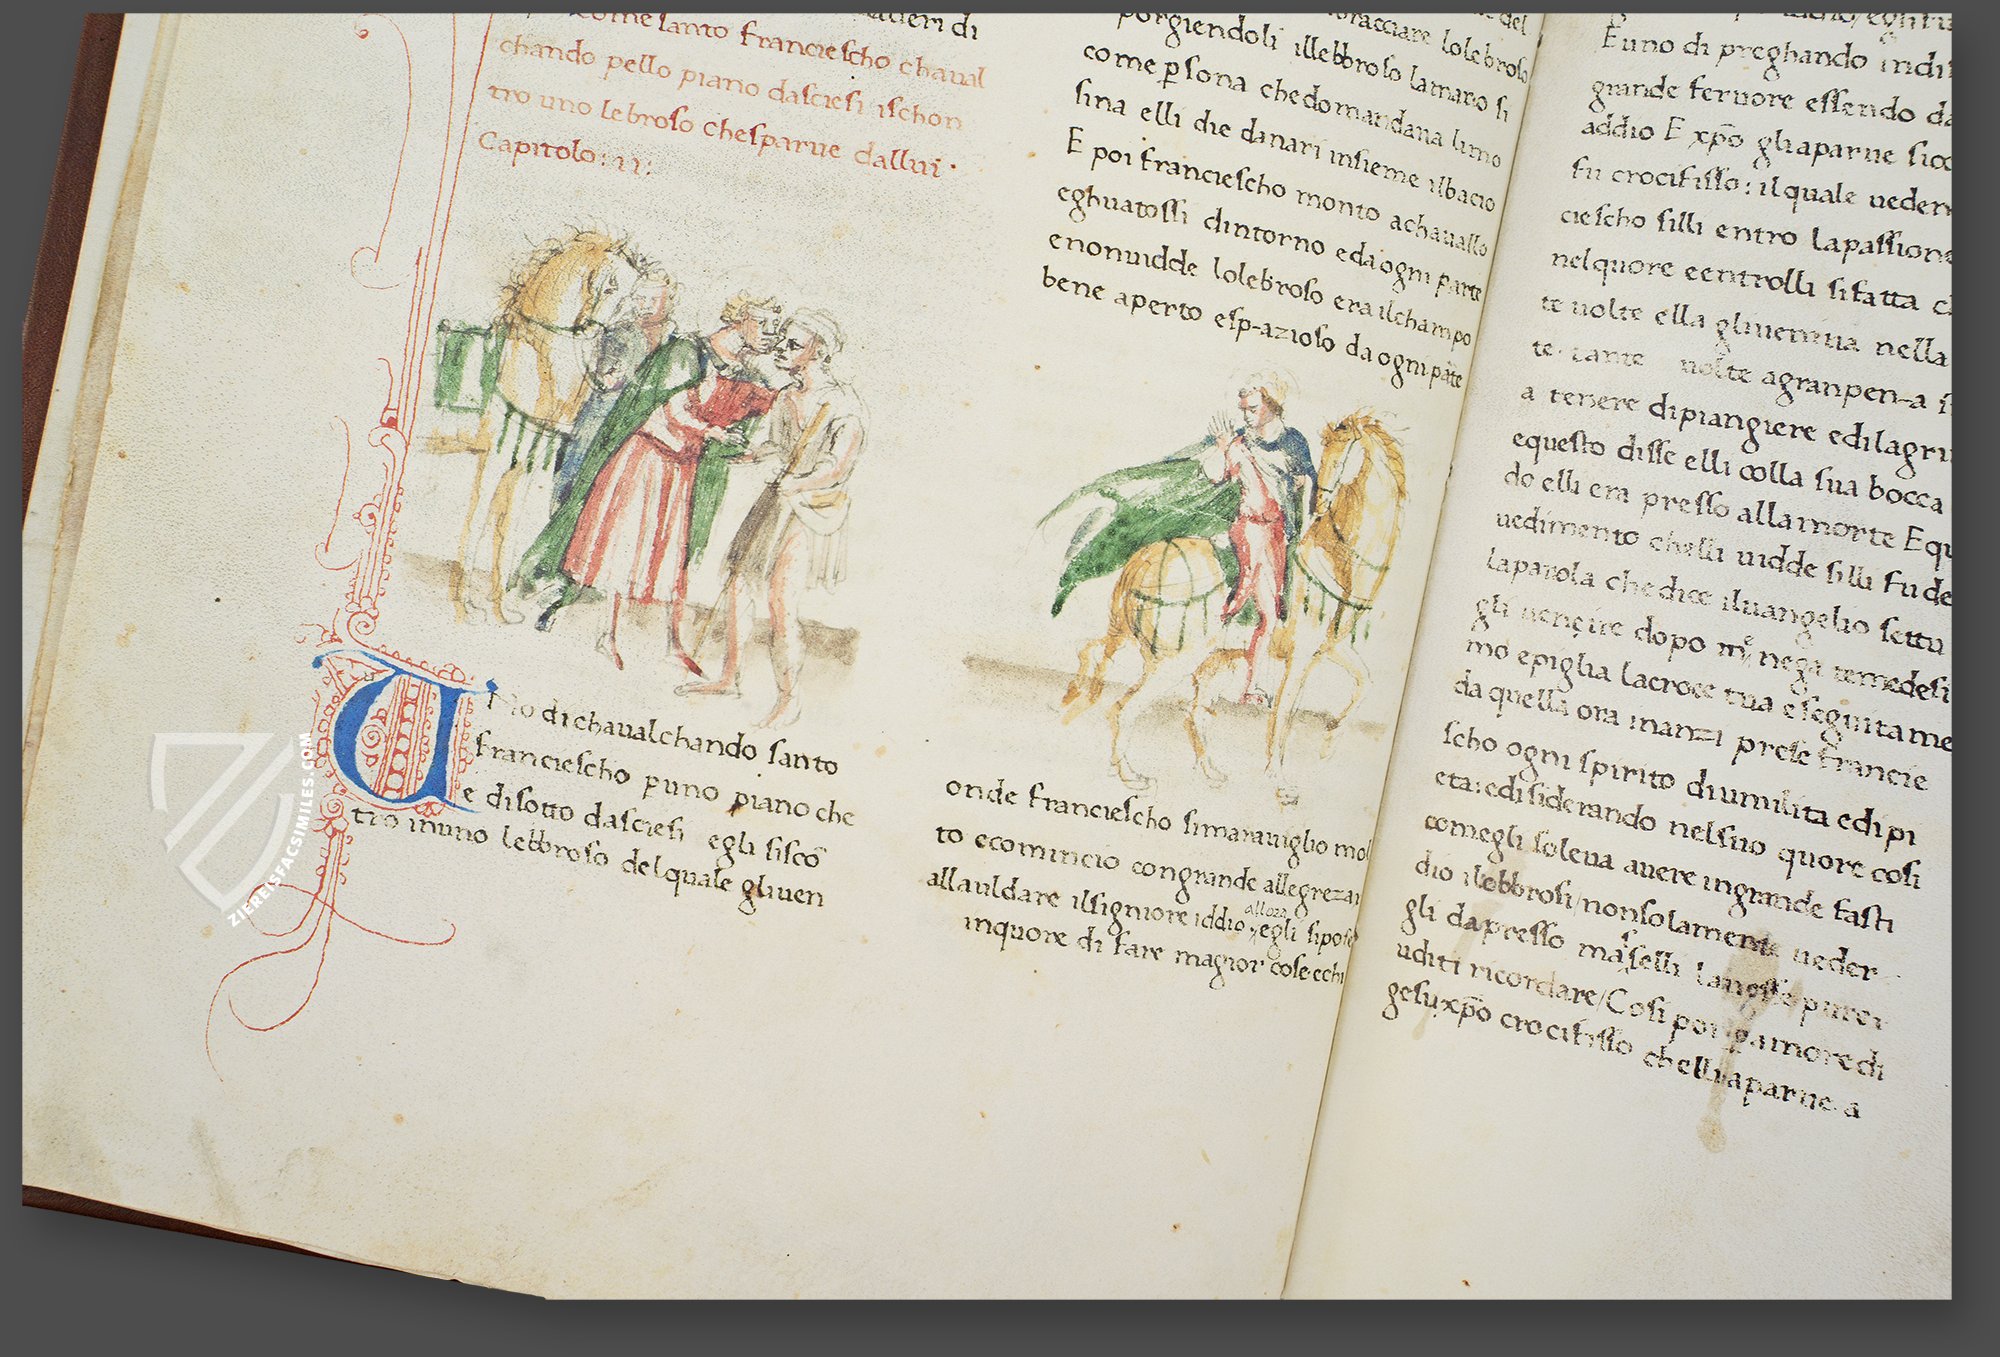 di
Come santo Franciescho chaual
chando pello piano dasciesi ischon
tro uno lebroso chesparue dallui·
Capitolo: 11:
No di chaualchando santo
Franciescho p uno piano che
e disotto dasciesi egli siscō
tro inuno lebbroso delquale gliuen
del
abracciare lolebroso
porgiendoli illebbroso lamano si
come psona chedomandaua limo
sina elli die danari insieme ilbacio
E poi franciescho monto achauallo
eghuatossi dintorno edaogni parte
enonuidde lolebroso era ilchampo
bene aperto esp-azioso daogni pāte
onde franciescho simarauiglio mol
to ecomincio congrande allegreza
allauldare ilsigniore iddio egli sipose
allora
inquore di fare magior cose echi
E uno di preghando indi
grande feruore essendo da
addio E xp̄o gliaparue sicc
fu crocifisso: ilquale ueder
ciescho silli entro lapassione
nelquore eentrolli sifatta c
te uolte ella gliueniua nella
te· tante uolte agranpen-a s
a tenere dipiangiere edilagri
questo disse elli colla sua bocca
do elli era presso allamorte Equ
uedimento chelli uidde silli fu de
laparola chedice iluangelio settu
gli uenire dopo me nega temedesi
mo epiglia lacroce tua eseguitame
da quella ora inanzi prese francie
scho ogni spirito diumilita edipi
eta: edisiderando nelsuo quore cosi
comegli soleua auere ingrande fasti
dio ilebbrosi/nonsolamente ueder
gli dapresso masselli
uditi ricordare/Cosi poi p amore di
gesuxp̄o crocifisso chelliaparue a
ZIEREISFACSIMILES.COM